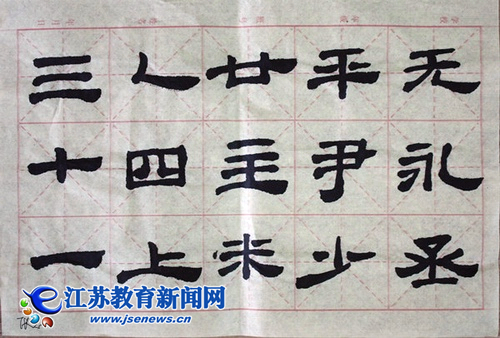 无永丞
平尹少
廿主米
人四上
三十一
江苏教育新闻网
www.jsenews.cn